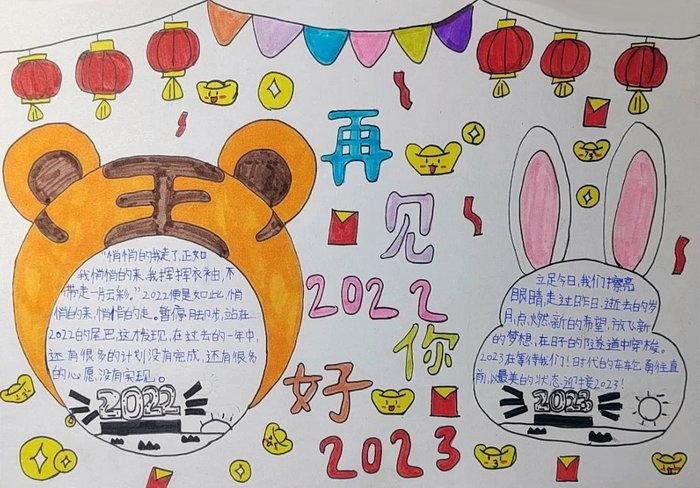 再
见
2022
你
好
2023
王
"悄悄的我走了,正如
我悄悄的来,我挥挥衣袖,不
带走一片云彩。"2022便是如此,悄
悄的来,悄悄的走。暂停脚步,站在
2022的尾巴,这才发现,在过去的一年中,
还有很多的计划没有完成,还有很多
的心愿没有实现。
2022
立足今日,我们擦亮
眼睛,走过昨日,逝去的岁
月,点燃新的希望,放飞新
的梦想,在时的隧道中穿梭。
2023在等待我们!时代的车轮勇往直
前,以最美的状态迎接2023!
2023